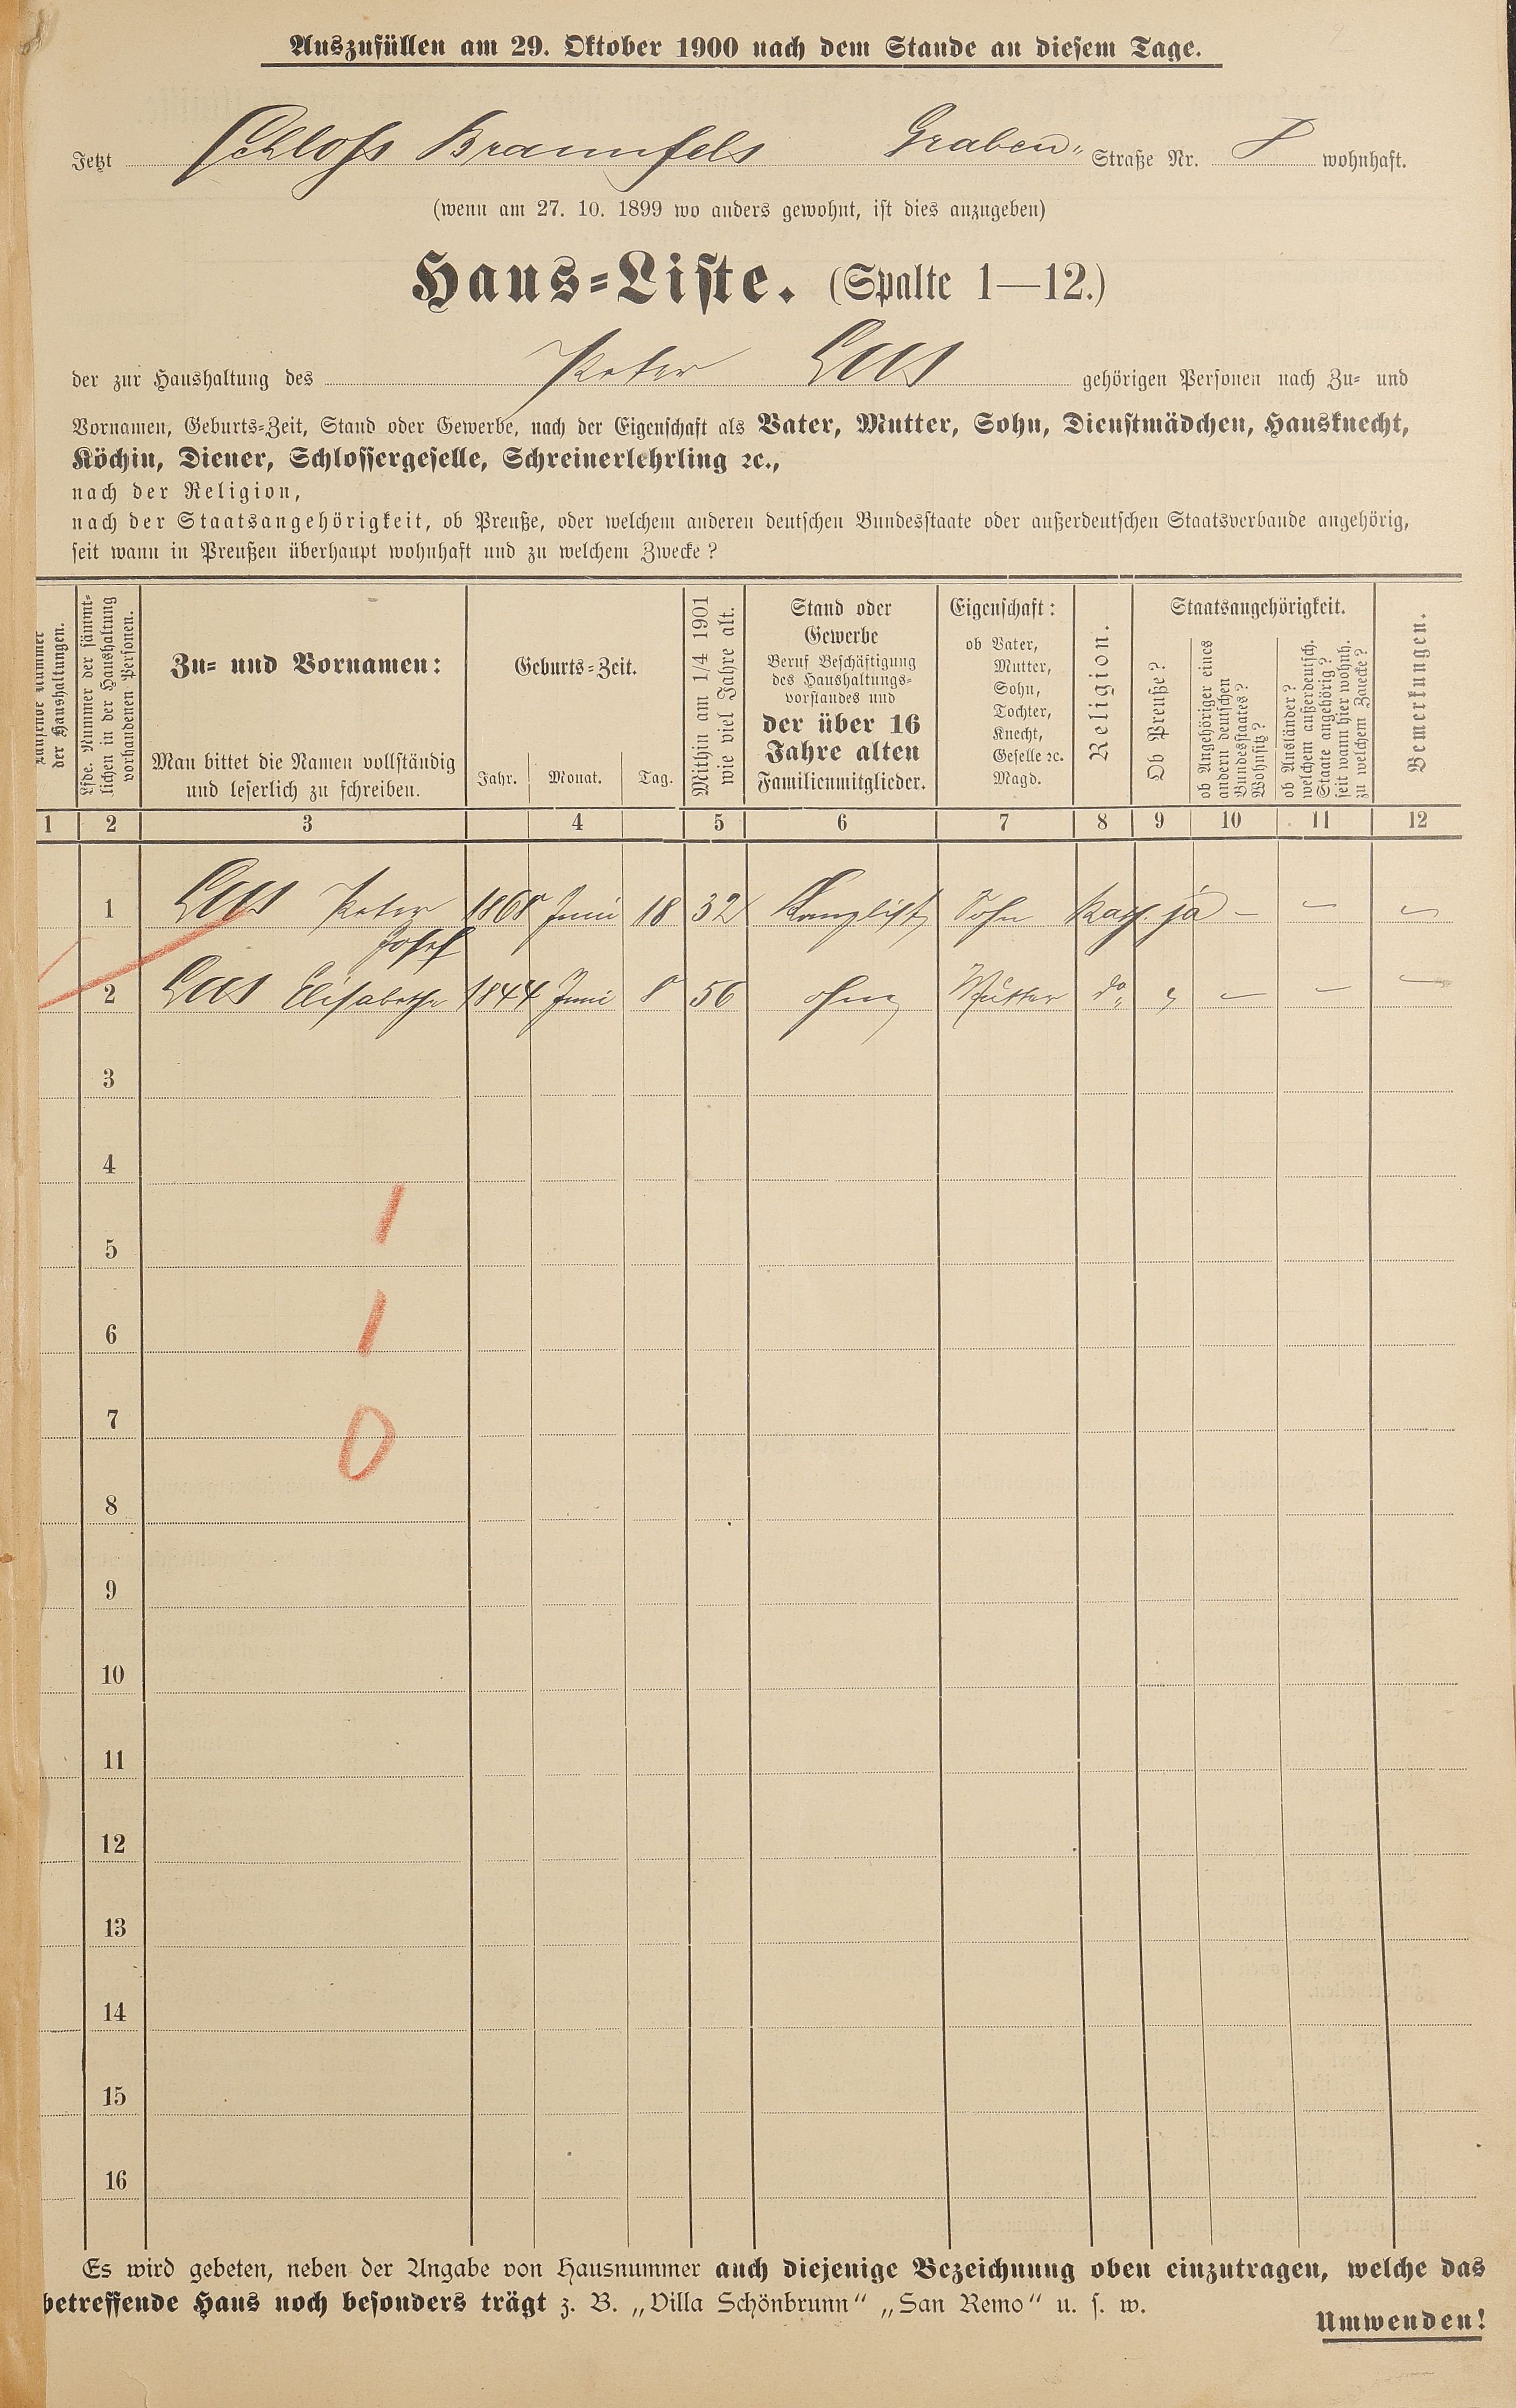 Auszufüllen am 29. Oktober 1900 nach dem Stande an diesem Tage.
Jetzt Schloss Braunfels Graben- Straße Nr. 8 wohnhaft.
(wenn am 27. 10. 1899 wo anders gewohnt, ist dies anzugeben)
Haus-Liste. (Spalte 1—12.)
der zur Haushaltung des Peter gehörigen Personen nach Zu- und
Vornamen, Geburts-Zeit, Stand oder Gewerbe, nach der Eigenschaft als Vater, Mutter, Sohn, Dienstmädchen, Hausknecht,
Köchin, Diener, Schlossergeselle, Schreinerlehrling ꝛc.,
nach der Religion,
nach der Staatsangehörigkeit, ob Preuße, oder welchem anderen deutschen Bundesstaate oder außerdeutschen Staatsverbande angehörig,
seit wann in Preußen überhaupt wohnhaft und zu welchem Zwecke?
Laufende Nummer
der Haushaltungen.
Lfde. Nummer der sämmt-
lichen in der Haushaltung
vorhandenen Personen.
Zu- und Vornamen:
Man bittet die Namen vollständig
und leserlich zu schreiben.
Geburts-Zeit.
Jahr. Monat. Tag.
Mithin am 1/4 1901
wie viel Jahre alt.
Stand oder
Gewerbe
Beruf Beschäftigung
des Haushaltungs-
vorstandes und
der über 16
Jahre alten
Familienmitglieder.
Eigenschaft:
ob Vater,
Mutter,
Sohn,
Tochter,
Knecht,
Geselle ꝛc.
Magd.
Religion.
Staatsangehörigkeit.
Ob Preuße?
ob Angehöriger eines
andern deutschen
Bundesstaates?
Wohnsitz?
ob Ausländer?
welchem außerdeutsch.
Staate angehörig?
seit wann hier wohnh.
zu welchem Zwecke?
Bemerkungen.
1 2 3 4 5 6 7 8 9 10 11 12
1 Peter 1868 Juni 18 32 Kanzlist Sohn kath ja - - -
Josef
2 Elisabethe 1844 Juni 8 56 ohne Mutter do " - - -
3
4
1
5
1
6
7
0
8
9
10
11
12
13
14
15
16
Es wird gebeten, neben der Angabe von Hausnummer auch diejenige Bezeichnung oben einzutragen, welche das
betreffende Haus noch besonders trägt z. B. „Villa Schönbrunn“ „San Remo“ u. s. w.
Umwenden!